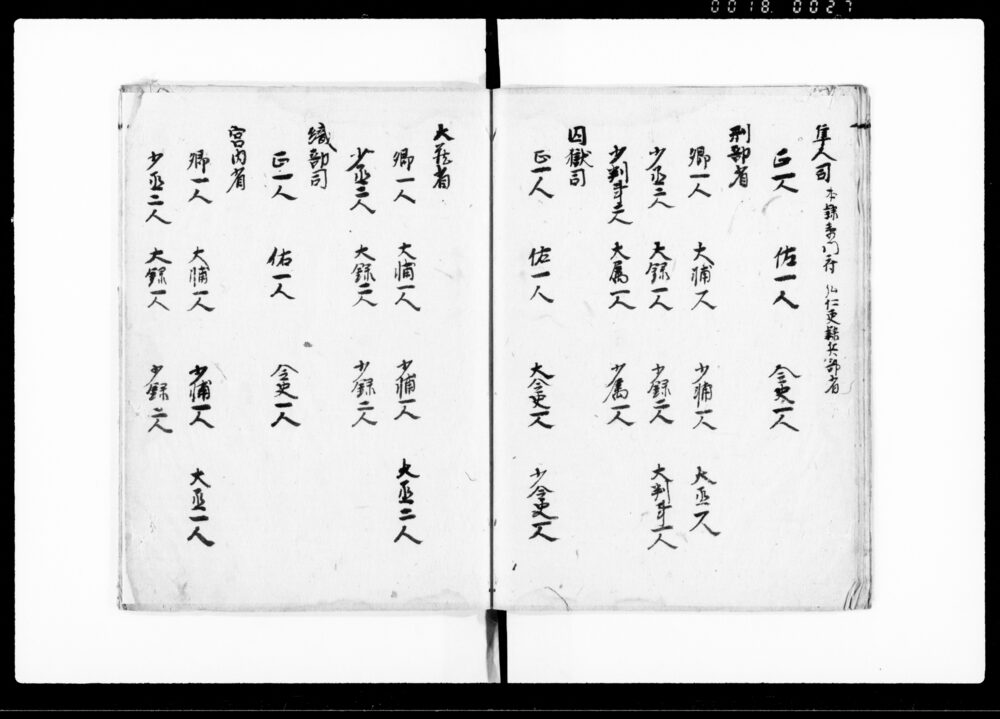 0018 0027
隼人司 本隷衛門府 弘仁更隷兵部省
正一人 佑一人 令史一人
刑部省
卿一人 大輔一人 少輔一人 大丞一人
少丞二人 大録一人 少録二人 大判事一人
少判事二人 大属一人 少属一人
囚獄司
正一人 佑一人 大令史一人 少令史一人
大蔵省
卿一人 大輔一人 少輔一人 大丞二人
少丞二人 大録二人 少録二人
織部司
正一人 佑一人 令史一人
宮内省
卿一人 大輔一人 少輔一人 大丞一人
少丞二人 大録一人 少録二人